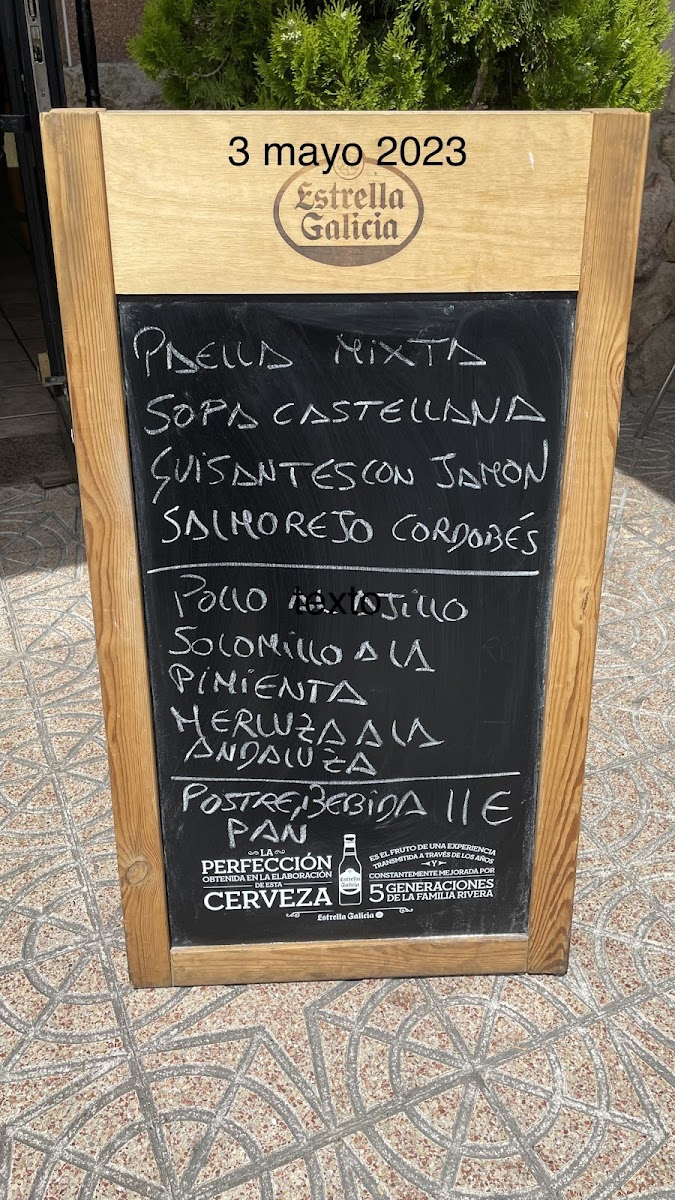 3 mayo 2023
Estrella
Galicia
PAELLA MIXTA
SOPA CASTELLANA
GUISANTES CON JAMON
SALMOREJO CORDOBÉS
POLLO AJILLO
texto
SOLOMILLO A LA
PIMIENTA
MERLUZA A LA
ANDALUZA
POSTRE, BEBIDA 11 E
PAN
LA
PERFECCIÓN
OBTENIDA EN LA ELABORACIÓN
DE ESTA
CERVEZA
Estrella
Galicia
ES EL FRUTO DE UNA EXPERIENCIA
TRANSMITIDA A TRAVÉS DE LOS AÑOS
Y
CONSTANTEMENTE MEJORADA POR
5 GENERACIONES
DE LA FAMILIA RIVERA
Estrella Galicia